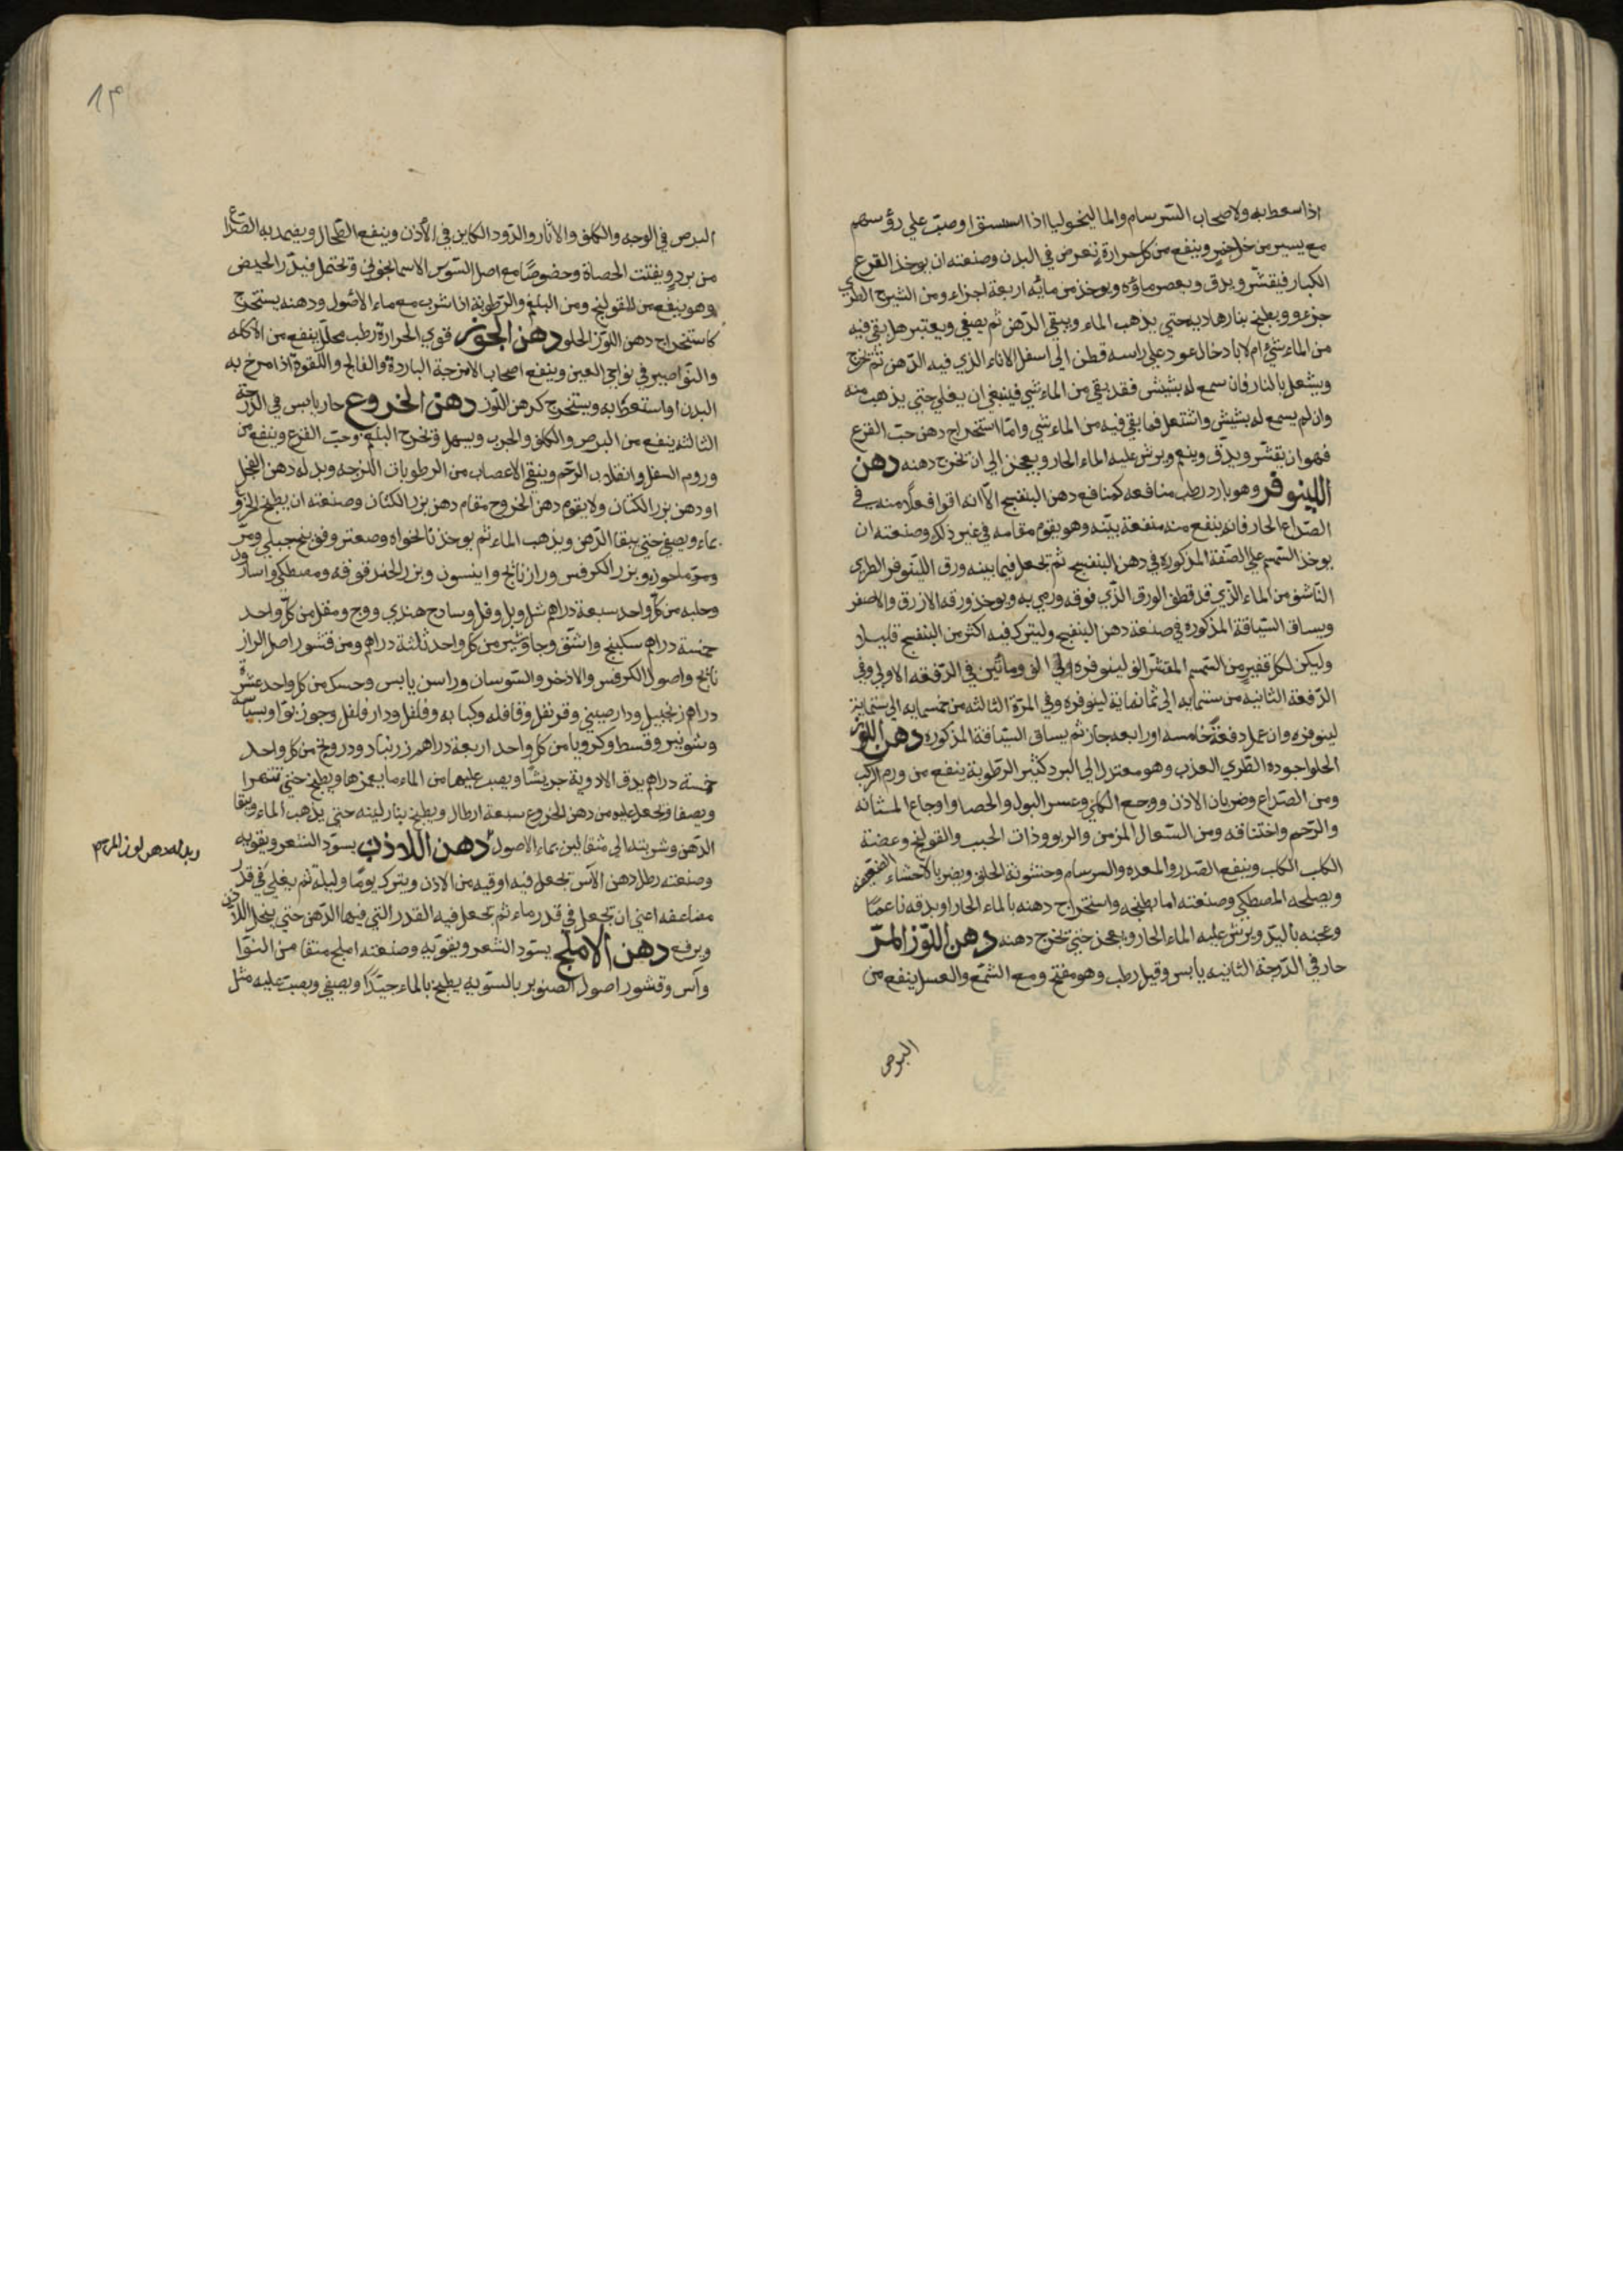 اذا سعط به ولاصحاب السرسام والماليخوليا اذا استسقوا وصب علي رؤسهم
مع يسير من خل خمر وينفع من كل حرارة تعرض في البدن وصنعته ان يوخذ القرع
الكبار فيقشر ويدق ويعصر ماؤه ويوخذ من مايه اربعة اجزاء ومن الشيرج الطري
جزء ويطبخ بنار هاديه حتي يذهب الماء ويبقي الدهن ثم يصفي ويعتبر هل بقي فيه
من الماء شيء ام لا بادخال عود علي راسه قطن الي اسفل الاناء الذي فيه الدهن ثم تخرج
ويشعل بالنار فان سمع له بشيش فقد بقي من الماء شي فينبغي ان يغلي حتي يذهب منه
وان لم يسمع له بشيش واشتعل فما بقي فيه من الماء شي واما استخراج دهن حب القرع
فهو ان يقشر ويدق وينعم ويرش عليه الماء الحار ويعجن الي ان تخرج دهنه دهن
اللينوفر وهو بارد رطب منافعه كمنافع دهن البنفسج الا انه اقوا فعلا منه في
الصداع الحار فانه ينفع منه منفعة بينه وهو يقوم مقامه في غير ذلك وصنعته ان
يوخذ السمسم علي الصفة المذكوره في دهن البنفسج ثم تجعل فيما بينه ورق اللينوفر الطري
الناشف من الماء الذي قد قطف الورق الذي فوقه ورمي به ويوخذ ورقه الازرق والاصفر
ويساق السياقة المذكوره في صنعة دهن البنفسج وليترك فيه اكثر من البنفسج قليلا
وليكن لكل قفيز من السمسم المقشر الف لينوفره الي الف ومأتين في الدفعه الاولي وفي
الدفعة الثانيه من ستمايه الي ثمانماية لينوفره وفي المرة الثالثه من خمسمايه الي ستماية
لينوفره وان عمل دفعة خامسه او رابعه جاز ثم يساق السياقة المذكوره دهن اللوز
الحلو اجوده الطري العذب وهو معتدل الي البرد كثير الرطوبة ينفع من ورم الركب
ومن الصداع وضربان الاذن ووجع الكلي وعسر البول والحصا واوجاع المثانه
والرحم واختناقه ومن السعال المزمن والربو وذات الجنب والقولنج وعضة
الكلب الكلب وينفع الصدر والمعده والسرسام وخشونة الحلق ويضر بالاحشاء الضعيفه
ويصلحه المصطكي وصنعته اما بطبخه واستخراج دهنه بالماء الحار او بدقه ناعما
وعجنه باليد ويرش عليه الماء الحار ويعجن حتي تخرج دهنه دهن اللوز المر
حار في الدرجة الثانيه يابس وقيل رطب وهو مفتح ومع الشمع والعسل ينفع من
البرص
البرص في الوجه والكلف والاثار والدود الكاين في الأذن وينفع الطحال ويضمد به الصداع
من برد ويفتت الحصاة وخصوصا مع اصل السوس الاسمانجوني وتحتمل فيدر الحيض
وهو ينفع من القولنج ومن البلغم والرطوبة اذا شرب مع ماء الأصول ودهنه يستخرج
كاستخراج دهن اللوز الحلو دهن الجوز قوي الحرارة رطب محلل ينفع من الاكله
والنواصير في نواحي العين وينفع اصحاب الامزجة الباردة والفالج واللقوة اذا مرخ به
البدن او استعط به ويستخرج كدهن اللوز دهن الخروع حار يابس في الدرجة
الثالثه ينفع من البرص والكلف والجرب ويسهل وتخرج البلغم وحب القرع وينفع من
ورم السفل وانقلاب الرحم وينقي الاعصاب من الرطوبات اللزجه وبدله دهن الفجل
او دهن بزر الكتان ولا يقوم دهن الخروع مقام دهن بزر الكتان وصنعته ان يطبخ الخروع
بماء ويصفي حتي يبقا الدهن ويذهب الماء ثم يوخذ نانخواه وصعتر وفوذنج جبلي ومر
ومرماحوز وبزر الكرفس ورازيانج وانيسون وبزر الحندقوقه ومصطكي واسارون
وحلبه من كل واحد سبعة دراهم شل وبل وفل وسادج هندي ووج ومقل من كل واحد
خمسة دراهم سكبينج واشق وجاوشير من كل واحد ثلثة دراهم ومن قشور اصل الراز
يانج واصول الكرفس والاذخر والسوسان وراسن يابس وحسك من كل واحد عشرة
دراهم زنجبيل ودارصيني وقرنفل وقاقله وكبابه وفلفل ودارفلفل وجوزبوا وبسباسه
وشونيز وقسط وكرويا من كل واحد اربعة دراهم زرنباد ودرونج من كل واحد
خمسة دراهم يدق الادوية جريشا ويصب عليها من الماء ما يغمرها ويطبخ حتي تتهرا
ويصفا وتجعل عليه من دهن الخروع سبعة ارطال ويطبخ بنار لينه حتي يذهب الماء ويبقا
الدهن وشربته الي مثقالين بماء الاصول دهن اللاذن يسود الشعر ويقويه
وصنعته رطل دهن الآس تجعل فيه اوقيه من الاذن ويترك يوما وليلة ثم يغلي في قدر
مضاعفه اعني ان تجعل في قدر ماء ثم تجعل فيه القدر التي فيها الدهن حتي ينحل اللاذن
ويرفع دهن الاملج يسود الشعر ويقويه وصنعته املج منقا من النوا
وآس وقشور اصول الصنوبر بالسويه يطبخ بالماء جيدا ويصفي ويصب عليه مثل
وبدله دهن لوز المر